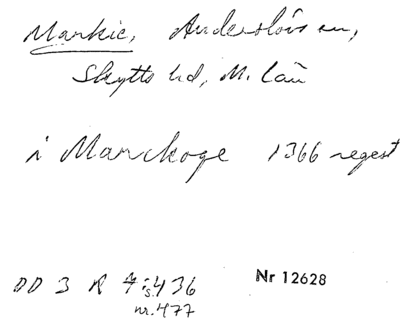 Markie, Anderslövs sn,
Skytts hd, M. län
i Marckoge 1366 regest
DD 3 R 7:s.436
nr.477
Nr 12628